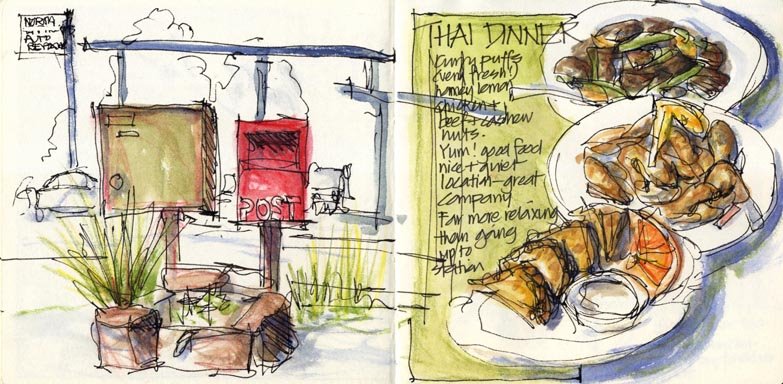 NORTH
AUTO
POST
THAI DINNER
Curry puffs
(very fresh!)
honey lemon
chicken +
beef + cashew
nuts.
Yum! good food
nice + quiet
location - great
company.
Far more relaxing
than going
up to
station